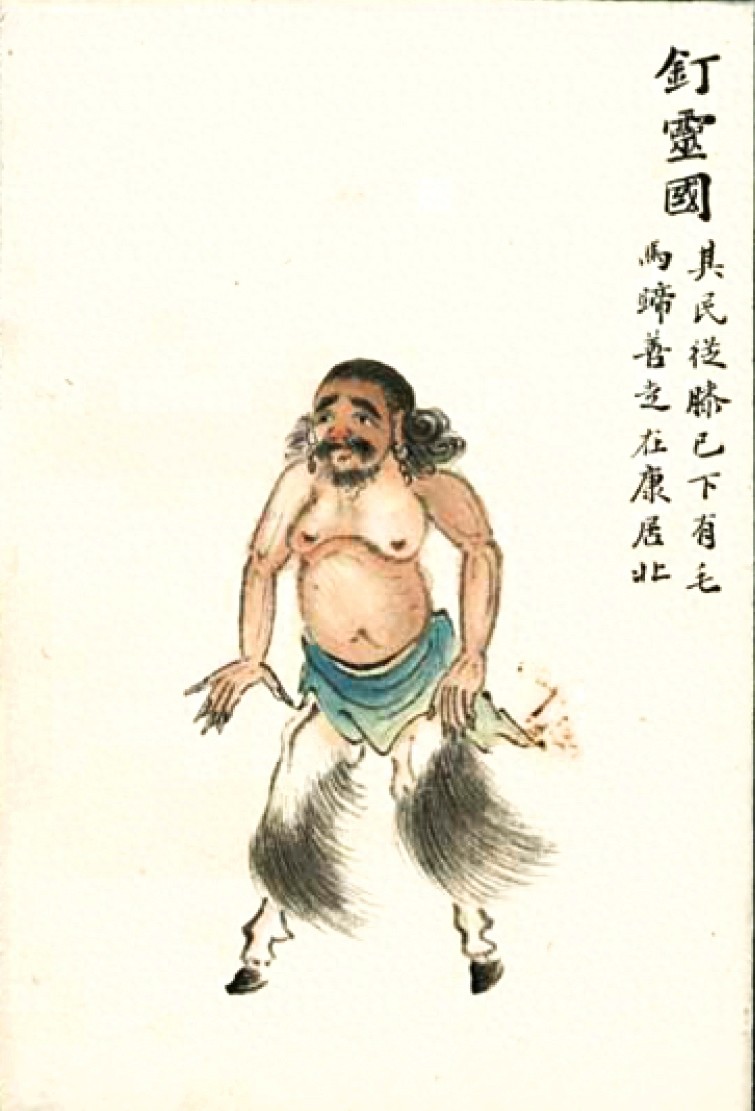 釘靈國
其民從膝已下有毛
馬蹄善走在康居北